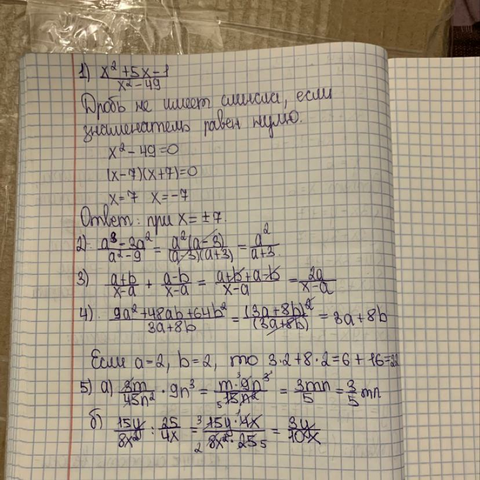 1) x² + 5x - 1 / x² - 49
Дробь не имеет смысла, если
знаменатель равен нулю.
x² - 49 = 0
(x-7)(x+7)=0
x=7 x=-7
Ответ: при x = ±7.
2) a³ - 3a² / a² - 9 = a²(a-3) / (a-3)(a+3) = a² / a+3
3) a+b / x-a + a-b / x-a = a+b+a-b / x-a = 2a / x-a
4) 9a² + 48ab + 64b² / 3a+8b = (3a+8b)² / (3a+8b) = 3a+8b
Если a=2, b=2, то 3·2+8·2=6+16=22
5) а) 3m / 45n² · 9n³ = m·9n³ / 15n² = 3mn / 5 = 3/5 mn
б) 15y / 8x² : 25 / 4x = 15y·4x / 8x²·25 = 3y / 10x